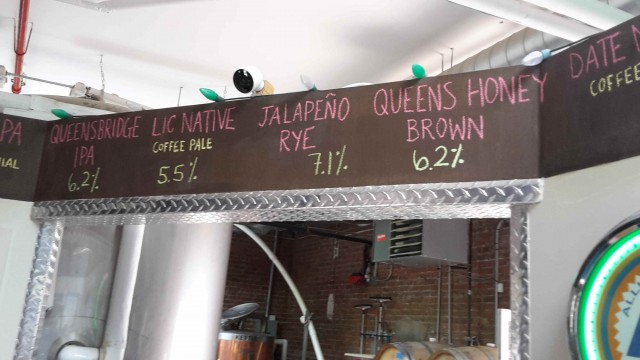 PA
IAL
QUEENSBRIDGE
IPA
6.2%
LIC NATIVE
COFFEE PALE
5.5%
JALAPEÑO
RYE
7.1%
QUEENS HONEY
BROWN
6.2%
DATE
COFFEE
ALL